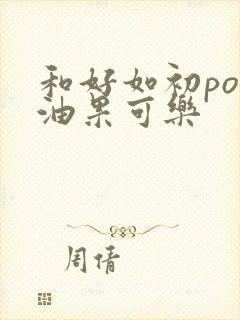 和好如初po
油果可樂
周倩